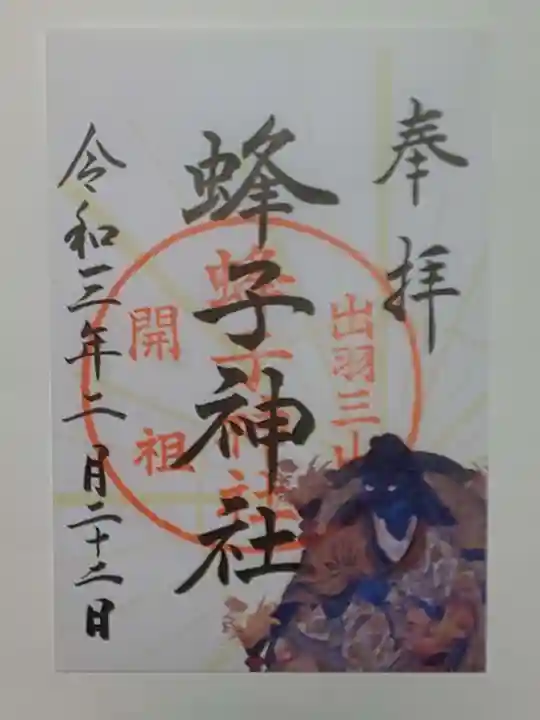 奉拝
出羽三山
蜂子神社
蜂子神社
開祖
令和三年二月二十二日